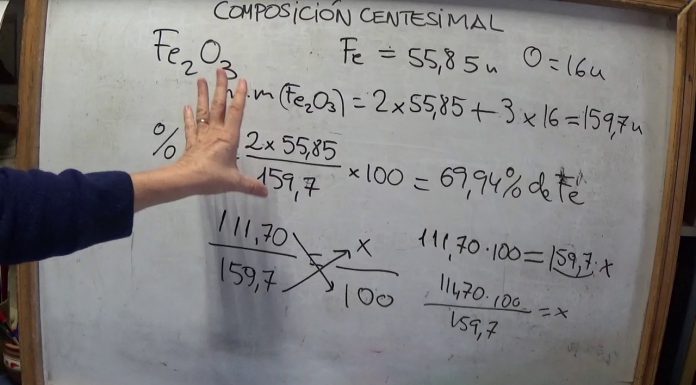 COMPOSICIÓN CENTESIMAL
Fe₂O₃ Fe = 55,85u O = 16u
m.m(Fe₂O₃) = 2 x 55,85 + 3 x 16 = 159,7u
% = 2 x 55,85 / 159,7 x 100 = 69,94% de Fe
111,70 / 159,7 = x / 100
111,70 · 100 = 159,7 · x
11170 · 100 / 159,7 = x